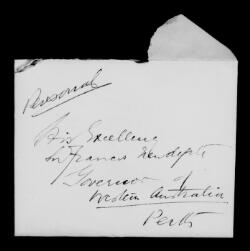 Personal
His Excellency
Sir Francis Newdegate
Governor of
Western Australia
Perth